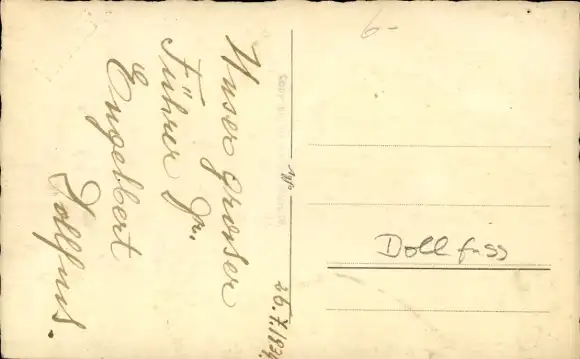 Unser grosser
Führer Dr.
Engelbert
Dollfuss.
26.7.1934.
6-
Dollfuss